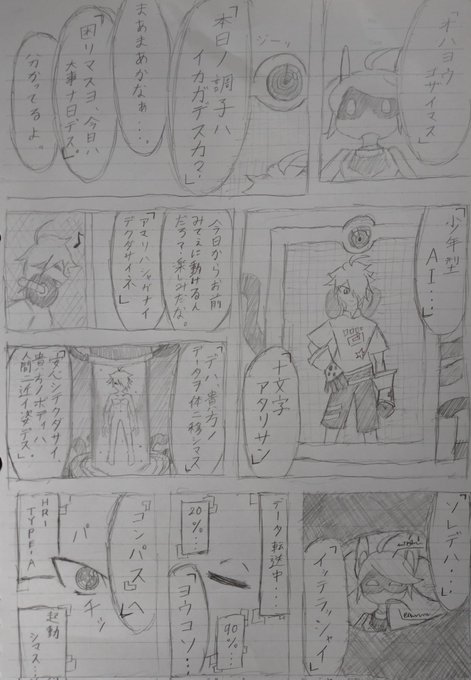 「オハヨウ
ゴザイマス」
ジーッ
「本日ノ調子ハ
イカガデスカ?」
まあまあかなぁ…。
「困リマスヨ、今日ハ
大事ナ日デス。」
分かってるよ。
「少年型
AI…。」
「十文字
アタリサン」
今日からお前
みてぇに動けるん
だろって楽しみだな。
「アマリハシャガナイ
デクダサイネ」
♪
「デハ、貴方ノ
データヲ体ニ移シマス」
「安心シテクダサイ
貴方ノボディハ、
人間ニ近イ姿デス。」
「ソレデハ…
「イッテラッシャイ」
データ転送中…
20%…
90%…
「ヨウコソ…
コンパスヘ」
パ
チッ
HRI
TYPE:A
起動
シマス…